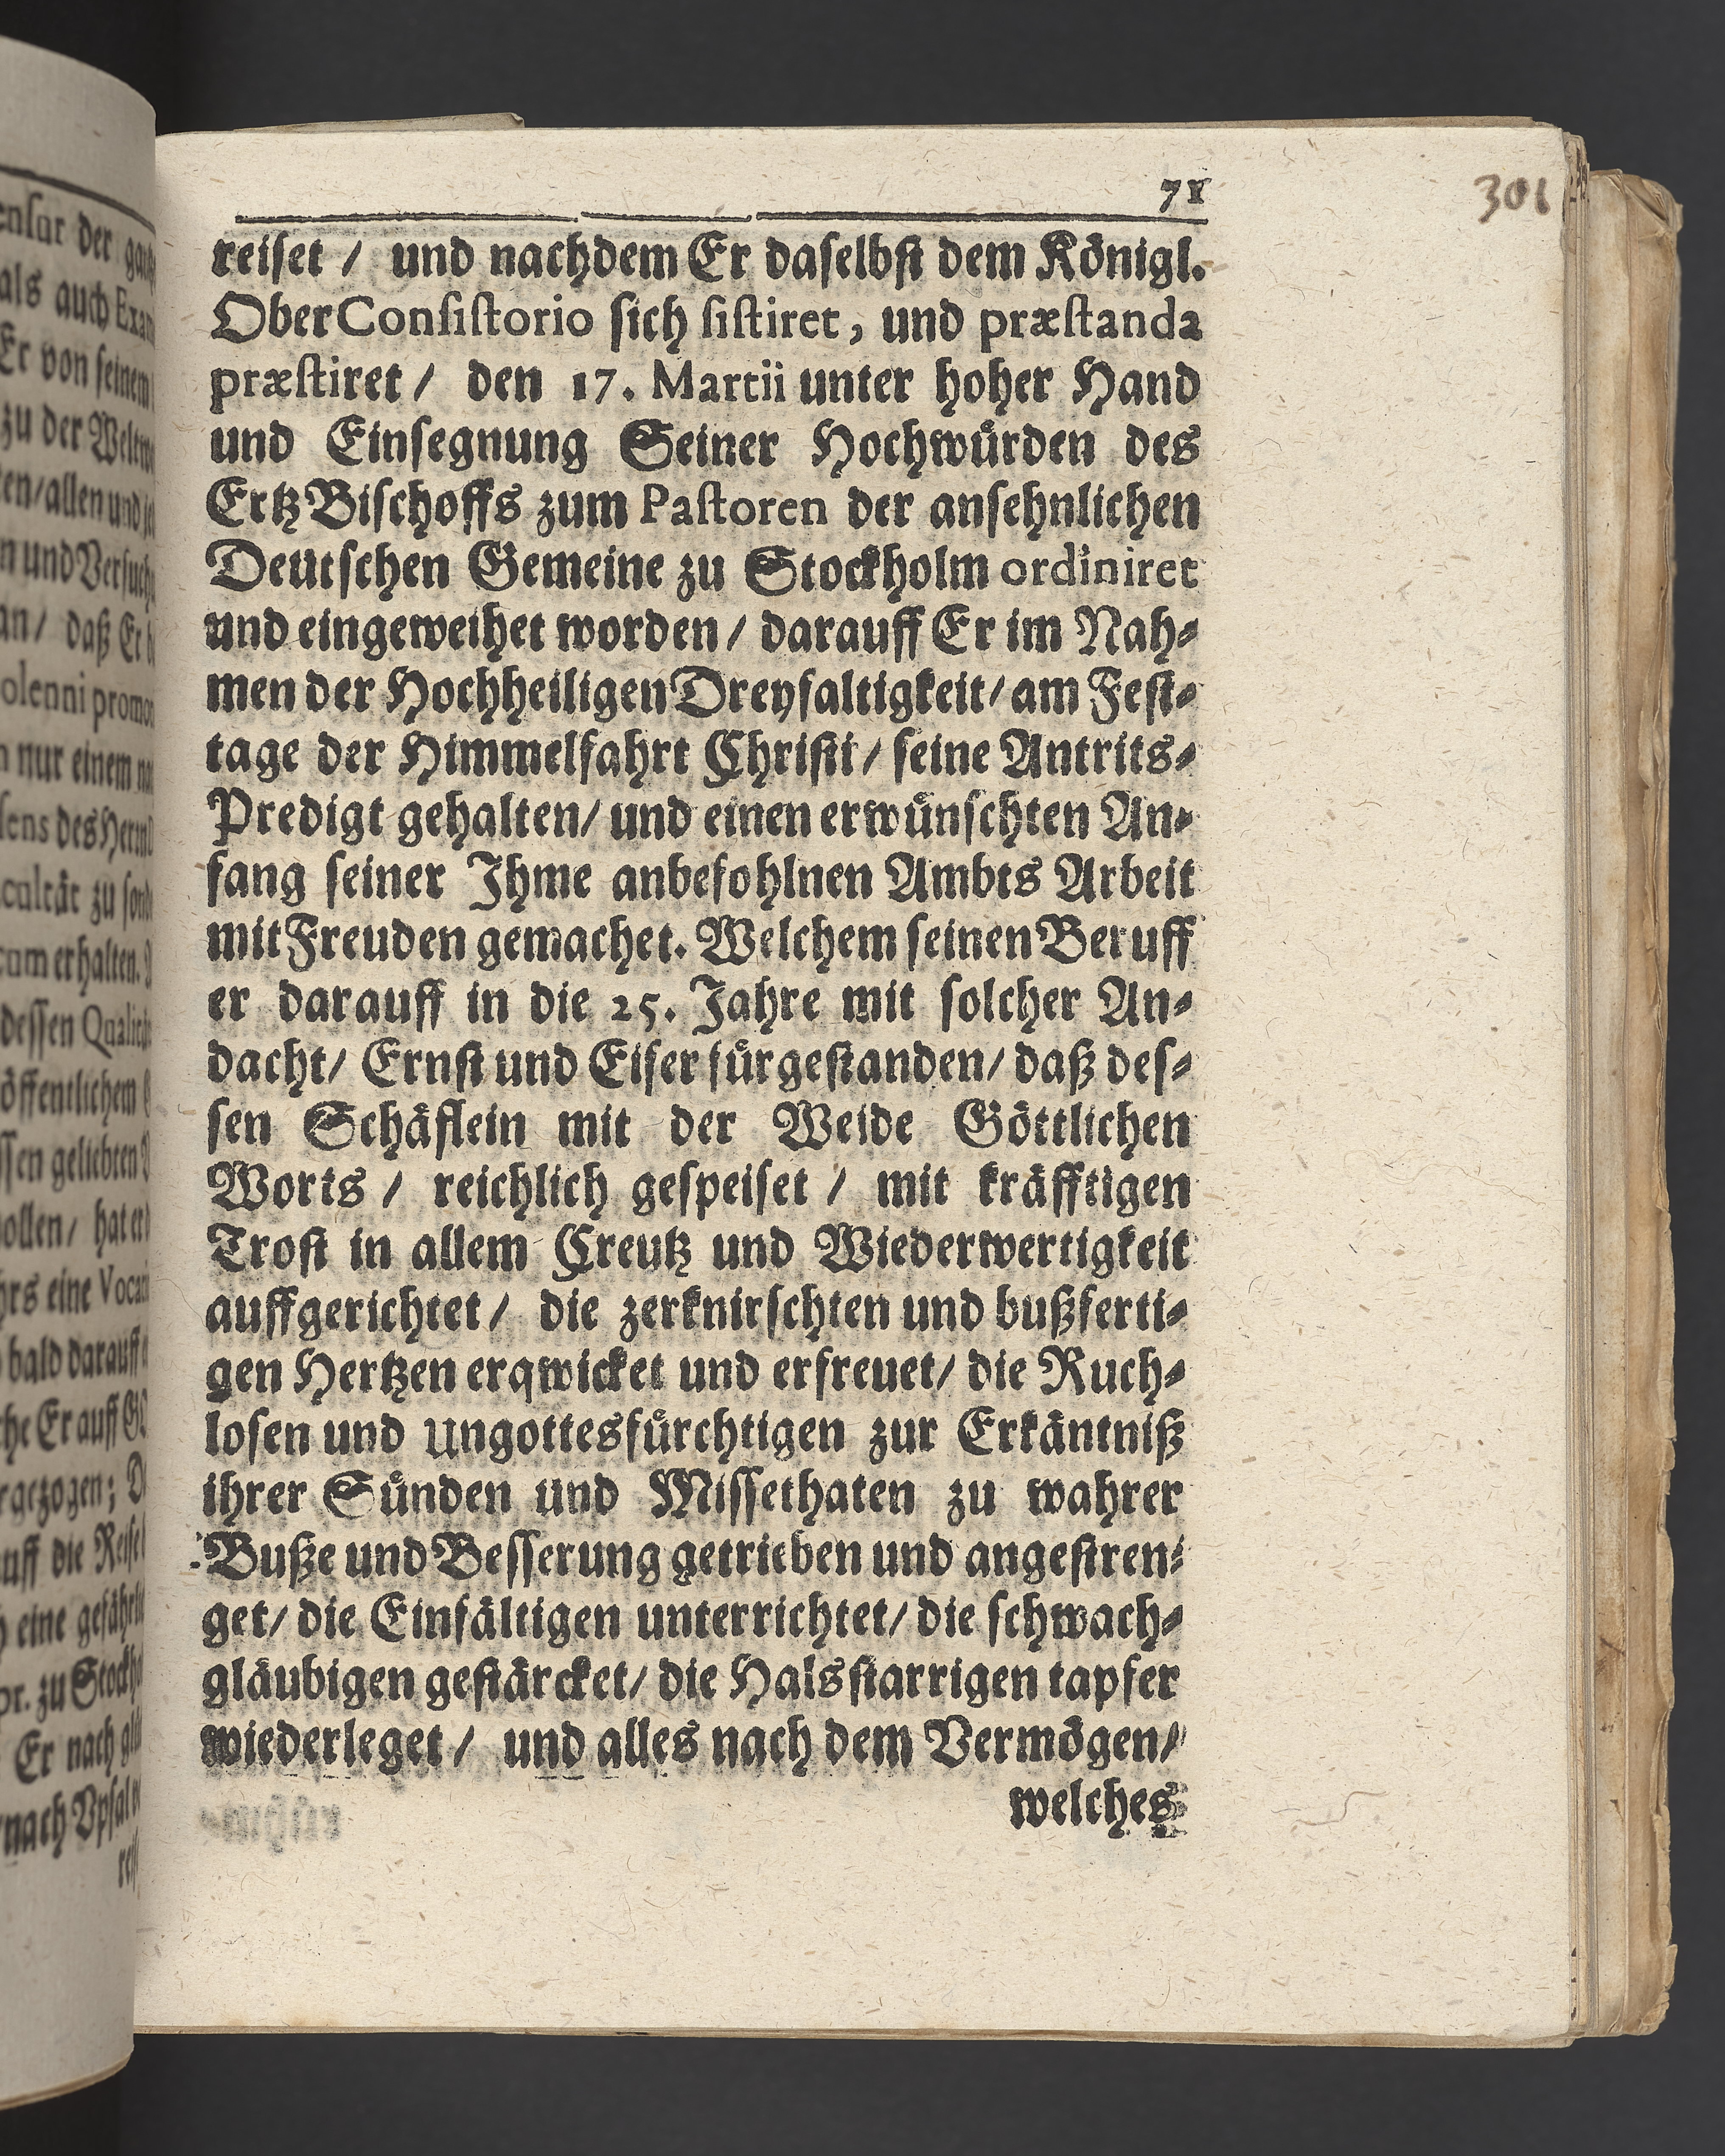 71
301
reiset / und nachdem Er daselbst dem Königl.
OberConsistorio sich sistiret, und præstanda
præstiret / den 17. Martii unter hoher Hand
und Einsegnung Seiner Hochwürden des
ErtzBischoffs zum Pastoren der ansehnlichen
Deütschen Gemeine zu Stockholm ordiniret
und eingeweihet worden / darauff Er im Nah-
men der Hochheiligen Dreyfaltigkeit / am Fest-
tage der Himmelfahrt Christi / seine Antrits-
Predigt gehalten / und einen erwünschten An-
fang seiner Ihme anbefohlnen Ambts Arbeit
mit Freuden gemachet. Welchem seinen Beruff
er darauff in die 25. Jahre mit solcher An-
dacht / Ernst und Eifer fürgestanden / daß des-
sen Schäflein mit der Weide Göttlichen
Worts / reichlich gespeiset / mit kräfftigen
Trost in allem Creutz und Wiederwertigkeit
auffgerichtet / die zerknirschten und bußferti-
gen Hertzen erqwicket und erfreuet / die Ruch-
losen und Ungottesfürchtigen zur Erkäntniß
ihrer Sünden und Missethaten zu wahrer
Buße und Besserung getrieben und angestren-
get / die Einfältigen unterrichtet / die schwach-
gläubigen gestärcket / die Halsstarrigen tapfer
wiederleget / und alles nach dem Vermögen /
welches